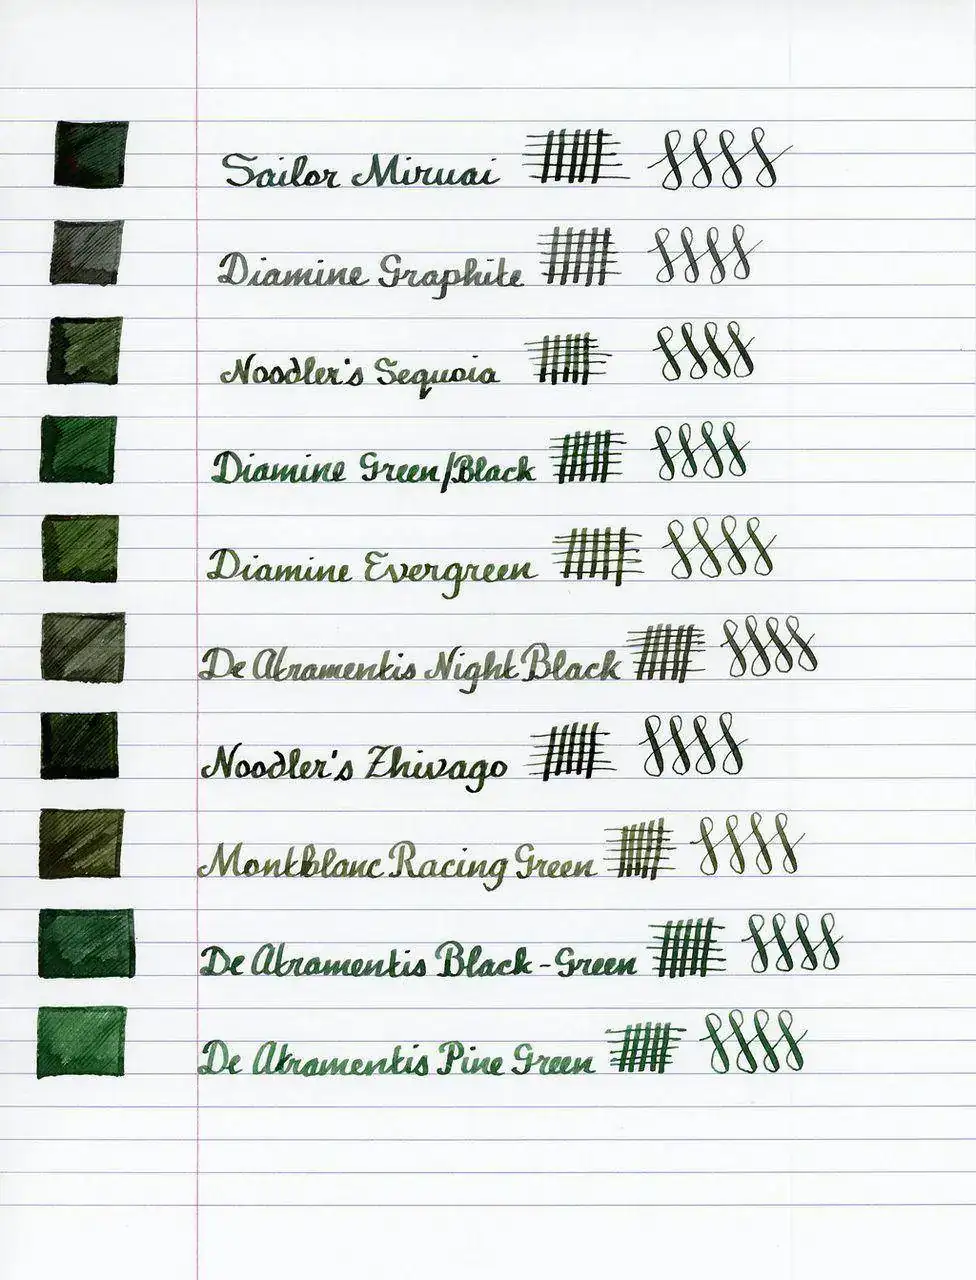 Sailor Miruai
Diamine Graphite
Noodler's Sequoia
Diamine Green/Black
Diamine Evergreen
De Atramentis Night Black
Noodler's Zhivago
Montblanc Racing Green
De Atramentis Black-Green
De Atramentis Pine Green